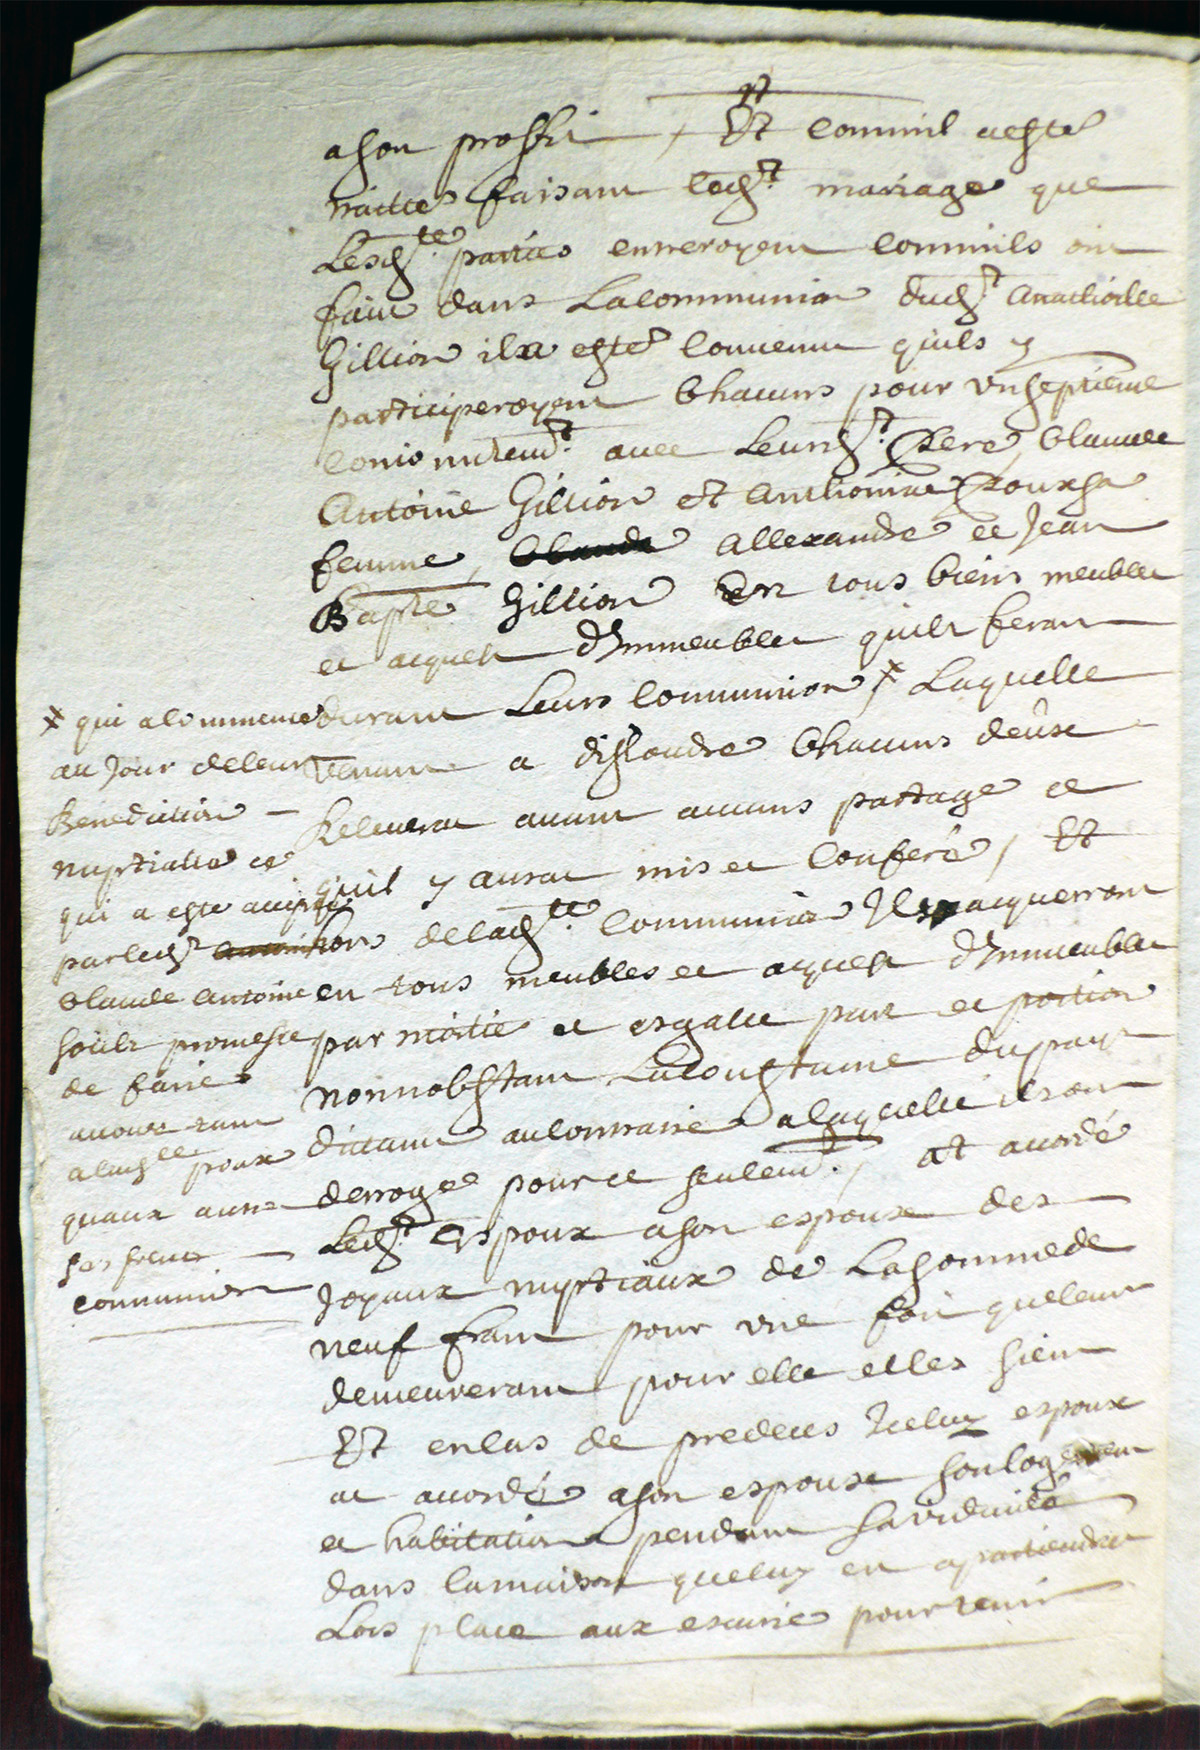 ason proffit, Et comm'il aesté
traitté faisant ledt mariage que
Lesdtte parties entreroyent comm'ils ont
fait dans La communion dudt Anathoille
Gillion il a esté convenu quils y
participeroyent Chacuns pour un septieme
conjointemt avec Leursdt Pere, Claude
Antoine Gillion et Anthoinne Roux sa
femme, Allexandre et Jean
Bapte Gillion En tous biens meubles
et acquest d'Immeubles quils feront
durant Leurs Communion, x Laquelle
venant a dissoudre Chacuns deux
Releverat avant aucuns partage ce
quil y aurat mis et Conferé, Et
hors deladtte Communion Ils acquerront
en tous meubles et acquest d'Immeubles
par moitié et esgalle part et portion
nonnobstant La Coustume du pays
dictant au contraire a laquelle ils ont
derrogé pource seulemt, at accordé
Ledt Espoux ason espouse des
Joyaux nuptiaux de La somme de
neuf franc pour une fois que leur
demeureront pour elle et les siens
Et en cas de predeces Iceluy espoux
at accordé ason espouse son logement
et habitation pendant sa viduité
dans la maison que luy en apartiendrat
Lors place aux escurie pour tenir
x qui a commencé
au Jour de leur
Benediction
nuptialle et
qui a esté accepté
par ledt
Claude Antoine
soubs promesse
de faire
avouer tant
a ladtte poux
quaux autre
ses freres
communion